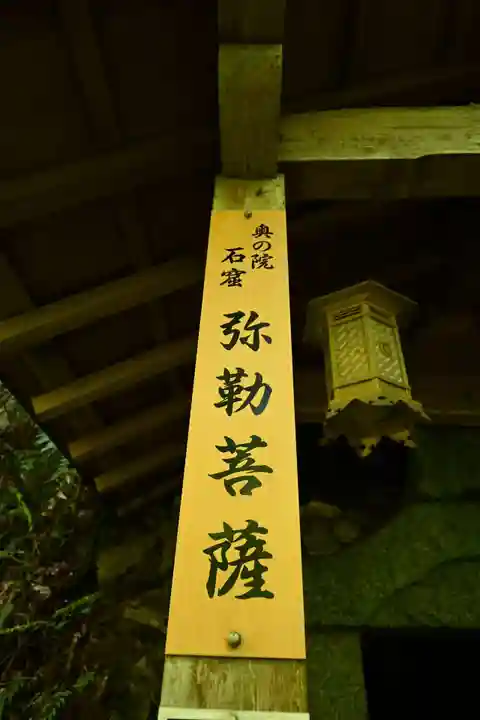 奥の院
石窟
弥勒菩薩